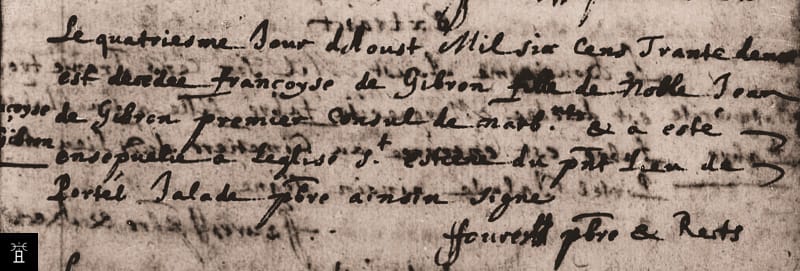 Le quatriesme Jour d'Aoust Mil six Cens Trante deux
est decedee françoyse de Gibron fille de Noble Jean
de Gibron premier Consul de Narb.ne & a esté
ensepuelie a Leglise St estiene du pnt Lieu de
Portel Jalade pbre ainsin signe
pbre & Rects